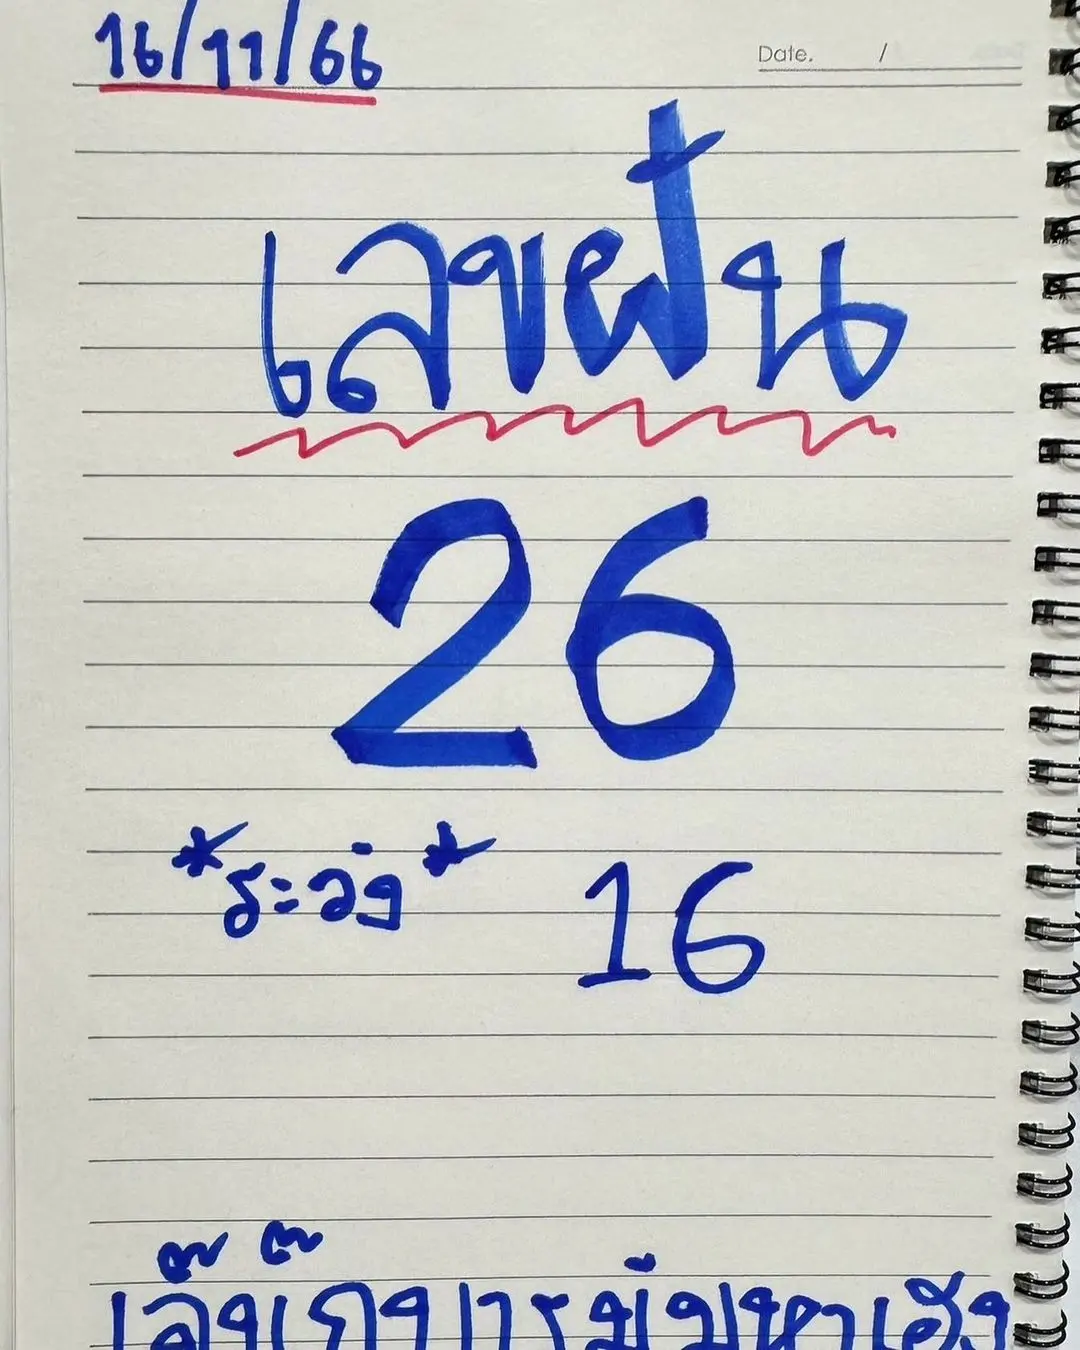 16/11/66
Date. /
เลขฝัน
26
*ระวัง* 16